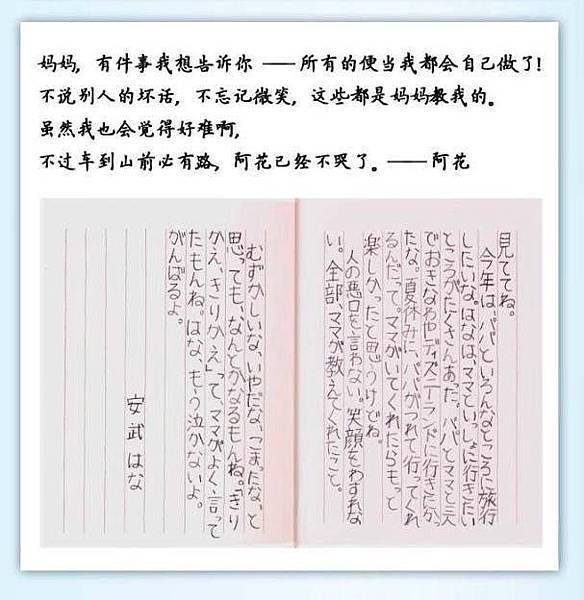 妈妈，有件事我想告诉你 ——所有的便当我都会自己做了！
不说别人的坏话，不忘记微笑，这些都是妈妈教我的。
虽然我也会觉得好难啊，
不过车到山前必有路，阿花已经不哭了。——阿花
見ててね。
今年は、パパといろんなところに旅行
したいな。はなは、ママといっしょに行きたい
ところがたくさんあった。パパとママと三人
でおきなわやディズニーランドに行きたかっ
たな。夏休みに、パパがつれて行ってくれ
るんだって。ママがいてくれたらもっと
楽しかったと思うけどね。
人の悪口を言わない。笑顔をわすれな
い。全部、ママが教えてくれたこと。
むずかしいな、いやだな、こまったな、と
思っても、なんとかなるもんね。「きり
かえ、きりかえ」って、ママがよく言って
たもんね。はな、もう泣かないよ。
がんばるよ。
安武はな